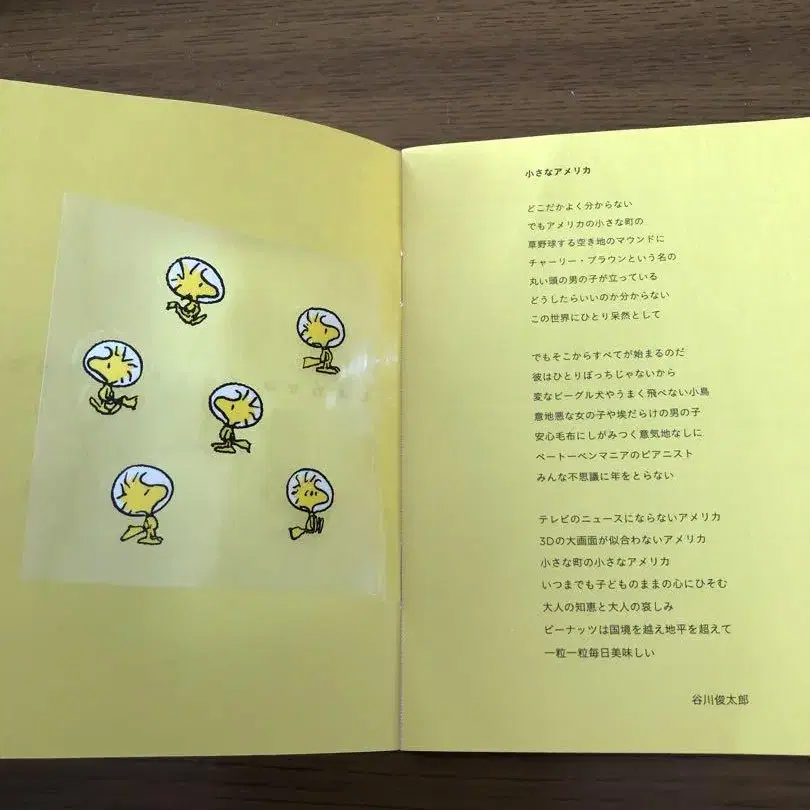 小さなアメリカ
どこだかよく分からない
でもアメリカの小さな町の
草野球する空き地のマウンドに
チャーリー・ブラウンという名の
丸い頭の男の子が立っている
どうしたらいいのか分からない
この世界にひとり呆然として
でもそこからすべてが始まるのだ
彼はひとりぼっちじゃないから
変なビーグル犬やうまく飛べない小鳥
意地悪な女の子や埃だらけの男の子
安心毛布にしがみつく意気地なしに
ベートーベンマニアのピアニスト
みんな不思議に年をとらない
テレビのニュースにならないアメリカ
3Dの大画面が似合わないアメリカ
小さな町の小さなアメリカ
いつまでも子どものままの心にひそむ
大人の知恵と大人の哀しみ
ピーナッツは国境を越え地平を超えて
一粒一粒毎日美味しい
谷川俊太郎